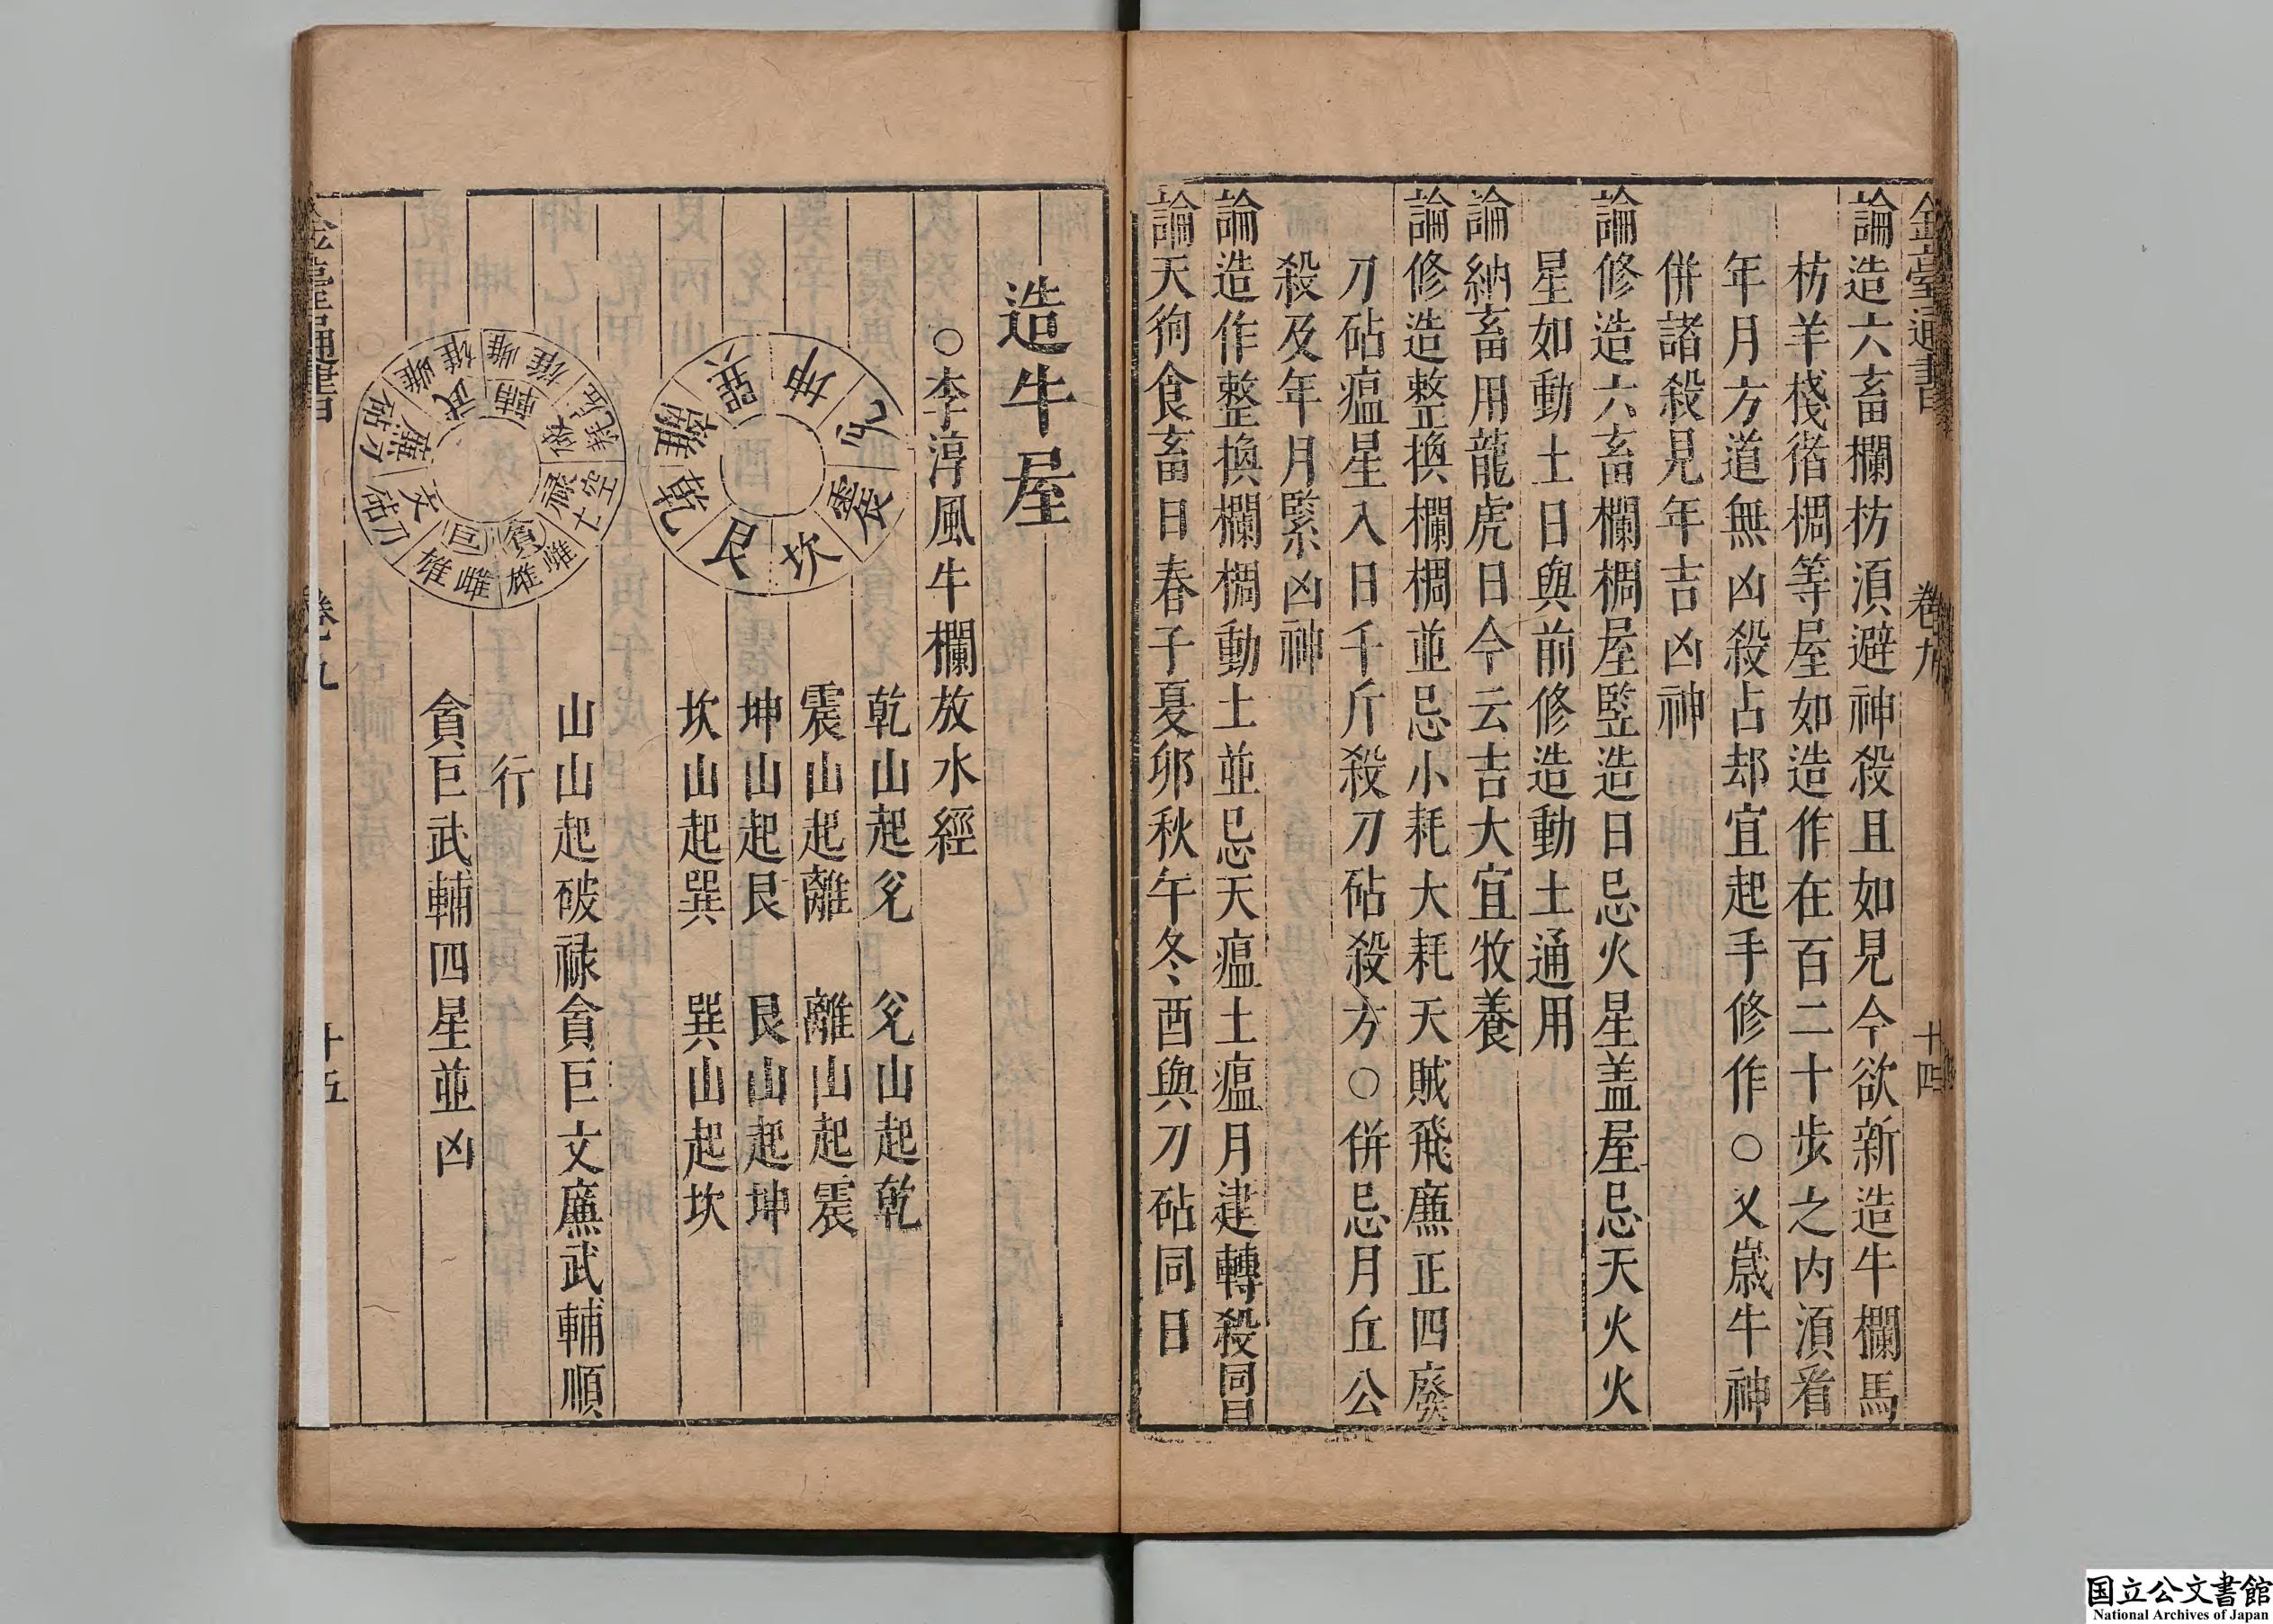 金臺通書 卷九 十四
論造六畜欄枋湏避神殺且如見今欲新造牛欄馬
枋羊棧㹠椆等屋如造作在百二十步之内湏看
年月方道無凶殺占却宜起手修作○又嵗牛神
併諸殺見年吉凶神
論修造六畜欄椆屋監造日忌火星盖屋忌天火火
星如動土日與前修造動土通用
論納畜用龍虎日今云吉大宜牧養
論修造整換欄椆並忌小耗大耗天賊飛廉正四廢
刀砧瘟星入日千斤殺刀砧殺方○併忌月丘公
殺及年月緊凶神
論造作整換欄椆動土並忌天瘟土瘟月建轉殺同日
論天狗食畜日春子夏卯秋午冬酉與刀砧同日
造牛屋
○李淳風牛欄放水經
乾山起兊 兊山起乾
震山起離 離山起震
坤山起艮 艮山起坤
坎山起巽 巽山起坎
巽 坤 兊 震 坎 艮 乾 離
山山起破禄貪巨文廉武輔順
行
貪巨武輔四星並凶
武 輔 禄 貪 巨 文 廉
雄 雌 雄 雌 空亡 雌 雄 雌 雄 砧刀 砧刀
金臺通書 卷九 十五